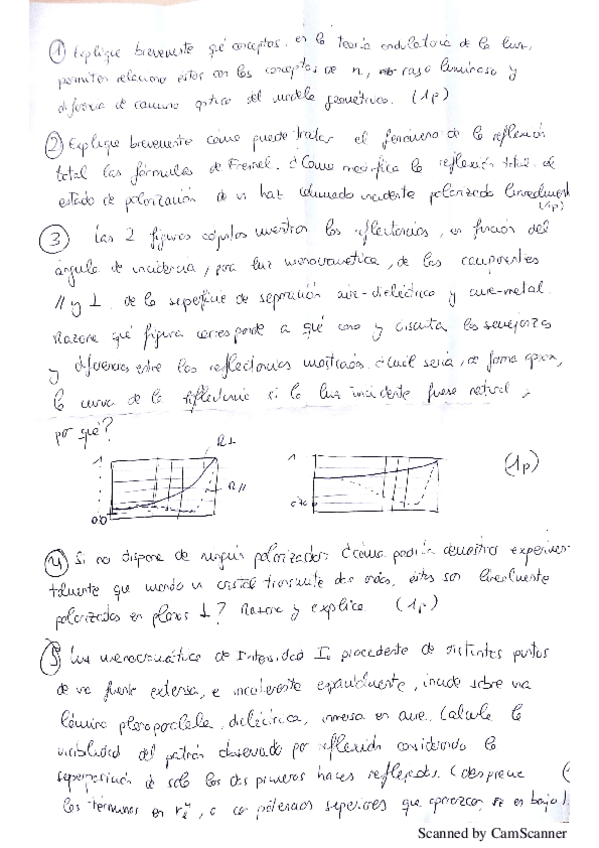 ① Explique brevemente qué conceptos, en la teoría ondulatoria de la luz,
permiten relacionar estos con los conceptos de n, rayo luminoso y
diferencia de camino óptico del modelo geométrico. (1p)
② Explique brevemente cómo puede tratar el fenómeno de la reflexión
total las fórmulas de Fresnel. ¿Cómo modifica la reflexión total el
estado de polarización de un haz colimado incidente polarizado linealmente
(1p)
③ Las 2 figuras adjuntas muestran las reflectancias, en función del
ángulo de incidencia, para luz monocromática, de las componentes
// y ⊥ de la superficie de separación aire-dieléctrico y aire-metal.
Razone qué figura corresponde a qué caso y discuta las semejanzas
y diferencias entre las reflectancias mostradas. ¿Cuál sería, de forma aprox,
la curva de la reflectancia si la luz incidente fuese natural,
por qué?
R⊥
1
R//
0
1
0
(1p)
④ Si no dispone de ningún polarizador ¿cómo podría demostrar experimen-
talmente que cuando un cristal transmite dos ondas, éstas son linealmente
polarizadas en planos ⊥? Razone y explice (1p)
⑤ Luz monocromática de Intensidad I₀ procedente de distintos puntos
de una fuente extensa, e incoherente espacialmente, incide sobre una
lámina planoparalela, dieléctrica, inmersa en aire. Calcule la
visibilidad del patrón observado por reflexión considerando la
superposición de solo los dos primeros haces reflejados. (desprecie
los términos en o con potencias superiores que aparezcan,
Scanned by CamScanner